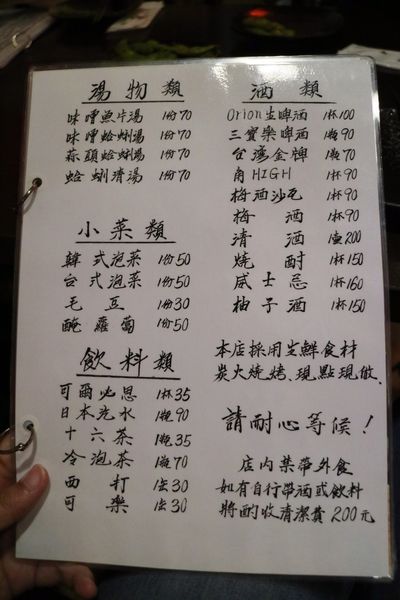 湯物類
味噌魚片湯 1份70
味噌蛤蜊湯 1份70
蒜頭蛤蜊湯 1份70
蛤蜊清湯 1份70
小菜類
韓式泡菜 1份50
台式泡菜 1份50
毛豆 1份30
醃蘿蔔 1份50
飲料類
可爾必思 1杯35
日本汽水 1瓶90
十六茶 1瓶35
冷泡茶 1瓶70
西打 1厺30
可樂 1厺30
酒類
Orion生啤酒 1杯100
三寶樂啤酒 1瓶90
台灣金牌 1瓶70
角HIGH 1杯90
梅酒沙瓦 1杯90
梅酒 1杯90
清酒 1壺200
燒酎 1杯150
威士忌 1杯160
柚子酒 1杯150
本店採用生鮮食材
炭火燒烤、現點現做、
請耐心等候！
店內禁帶外食
如有自行帶酒或飲料
將酌收清潔費200元